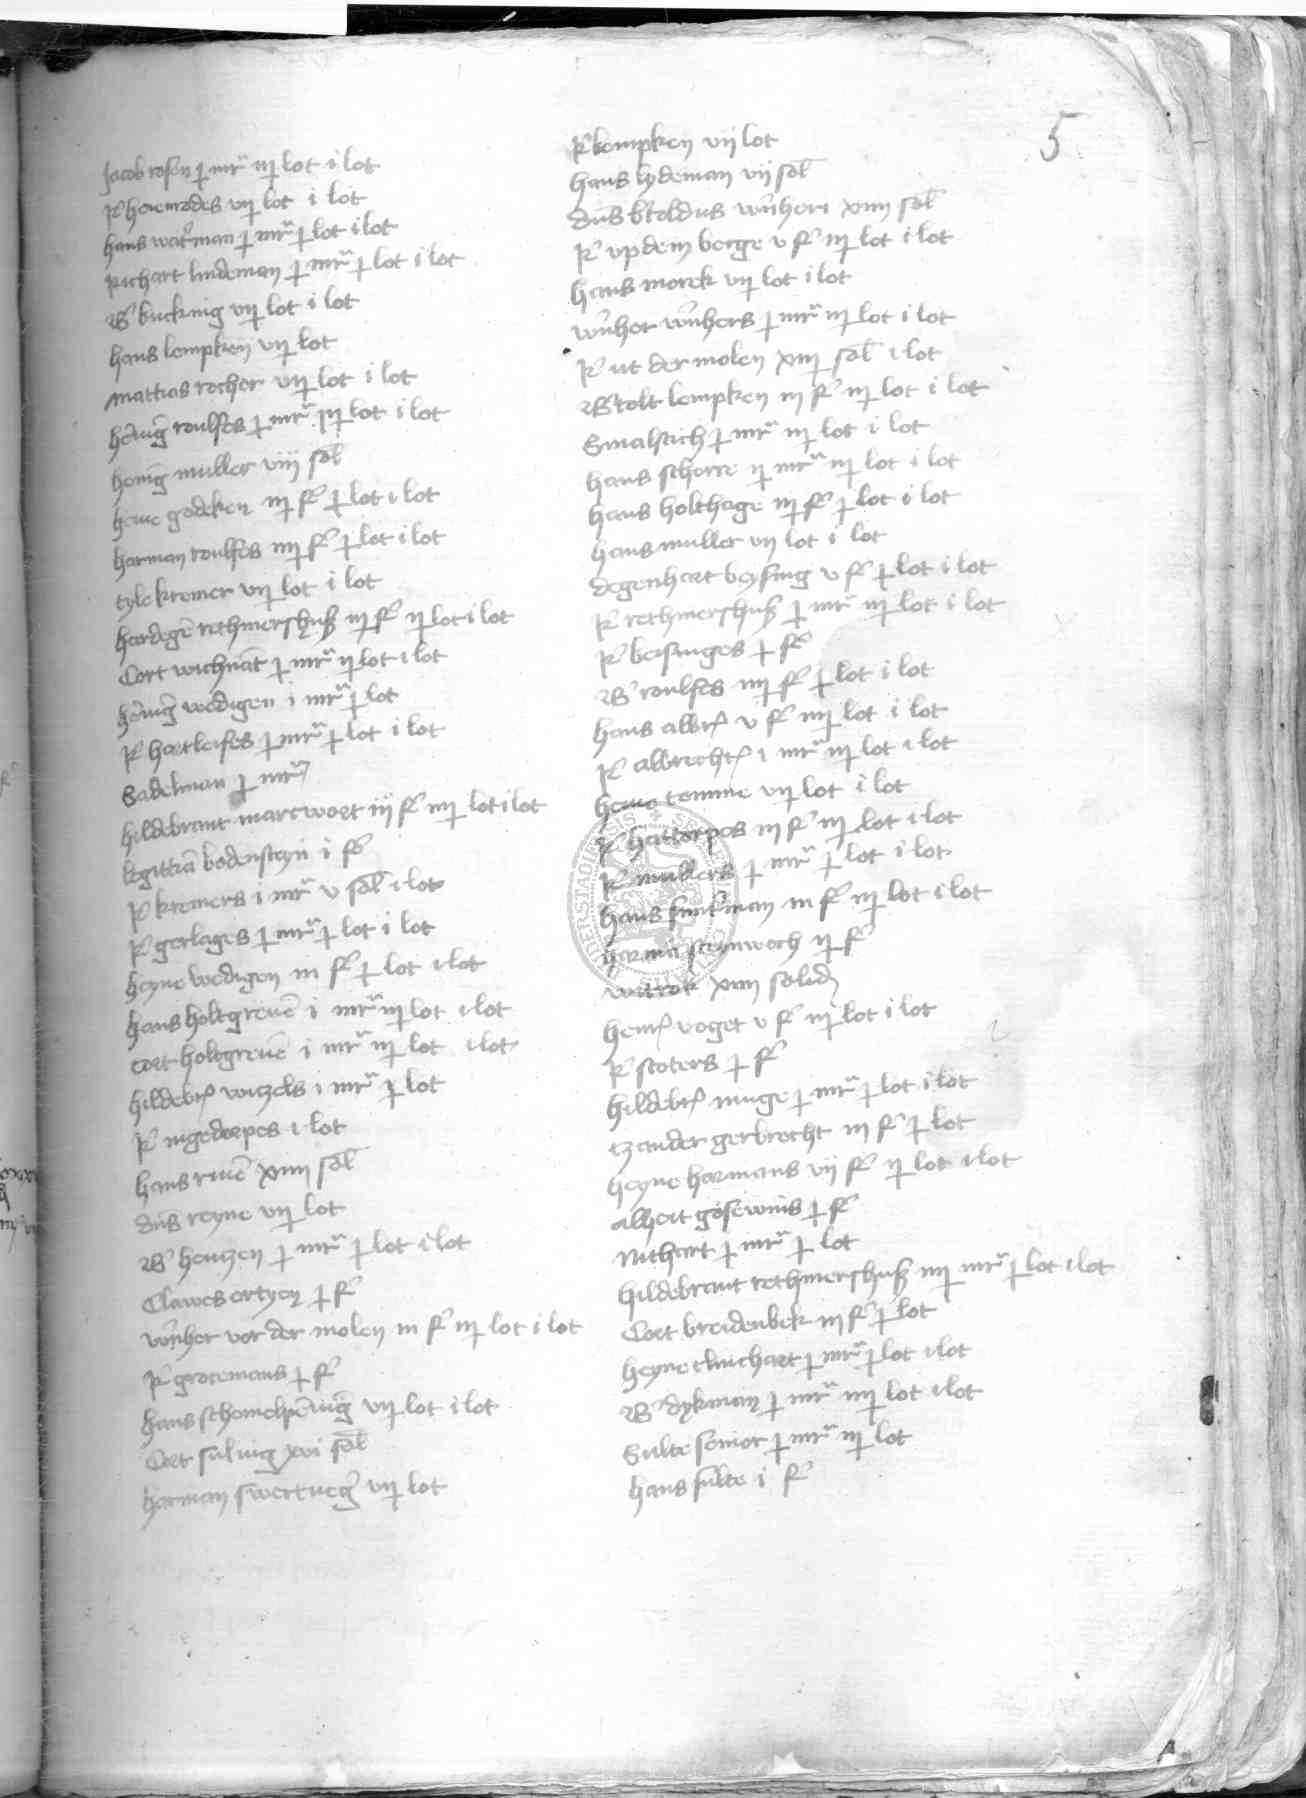 5
Jacob rosen ꝑ mrͣ iij lot i lot
R' herenrodes vij lot i lot
hans wat'man ꝑ mrͣ ꝑ lot i lot
Richart lindeman ꝑ mrͣ ꝑ lot i lot
B' bucknig vij lot i lot
hans lempken vij lot
mattias rocher vij lot i lot
heñig roulfes ꝑ mrͣ iij lot i lot
heñig muller viij sol
heine godeken iij f' ꝑ lot i lot
harman roulfes iiij f' ꝑ lot i lot
tyle kremer vij lot i lot
hardegē rethmershuß iij f' ij lot i lot
Cort wichnāt ꝑ mrͣ ij lot i lot
heñig wedigen i mrͣ ꝑ lot
R' hartleifes ꝑ mrͣ ꝑ lot i lot
Sadelman ꝑ mrͣ
hildebrant marcwort iij f' iiij lot i lot
bodensteyn i f'
R' kremers i mrͣ v sol i lot
R' gerlages ꝑ mrͣ ꝑ lot i lot
heyne wedigen iii f' ꝑ lot i lot
hans holtgrevē i mrͣ iij lot i lot
cort holtgrevē i mrͣ iij lot i lot
hildebr' witzels i mrͣ ꝑ lot
R' ingedorpes i lot
hans rivē xiiij sol
dns reyne vij lot
B' hentzen ꝑ mrͣ ꝑ lot i lot
Clawes ortyen ꝑ f'
wñher vor der molen iii f' iij lot i lot
R' grotemans ꝑ f'
hans schomelpēnig vij lot i lot
Cort suluig xvi sol
harman swertveg' vij lot
R' kempken vij lot
hans lydeman vij sol
dns b'toldus wñheri xiiij sol
R' vp dem berge v f' iij lot i lot
hans marek vij lot i lot
wñher wñhers ꝑ mrͣ iij lot i lot
R' ut der molen xiij sol i lot
B'tolt lempken iij f' iij lot i lot
Smalstich ꝑ mrͣ iij lot i lot
hans schorre ij mrͣ iij lot i lot
hans holthage iij f' ꝑ lot i lot
hans muller vij lot i lot
degenhart beysing v f' ꝑ lot i lot
R' rethmershuß ꝑ mrͣ iij lot i lot
R' beisinges ꝑ f'
B' roulfes iiij f' ꝑ lot i lot
hans albr' v f' iiij lot i lot
R' albrecht' i mrͣ iij lot i lot
heine temme vij lot i lot
R' hattorpes iij f' iij lot i lot
R' mullers ꝑ mrͣ ꝑ lot i lot
hans man iii f' iij lot i lot
harmā steynwech ij f'
witrok xiiij solid'
henr' voget v f' iij lot i lot
R' scoters ꝑ f'
hildebr' muge ꝑ mrͣ ꝑ lot i lot
tzander gerbrecht iij f' ꝑ lot
heyne harmans vij f' ij lot i lot
albert gosewins ꝑ f'
Nithart ꝑ mrͣ ꝑ lot
hildebrant rethmershuß iiij mrͣ ꝑ lot i lot
Cort breidenbek iij f' ꝑ lot
heyne clinchart ꝑ mrͣ ꝑ lot i lot
B' dykman ꝑ mrͣ iiij lot i lot
Sulte senior ꝑ mrͣ iij lot
hans sulte i f'